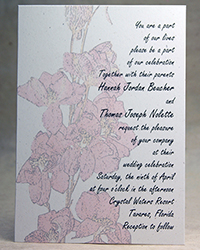 You are a part
of our lives
please be a part
of our celebration
Together with their parents
Hannah Jordan Beucher
and
Thomas Joseph Nolette
request the pleasure
of your company
at their
wedding celebration
Saturday, the ninth of April
at four o'clock in the afternoon
Crystal Waters Resort
Tavares, Florida
Reception to follow